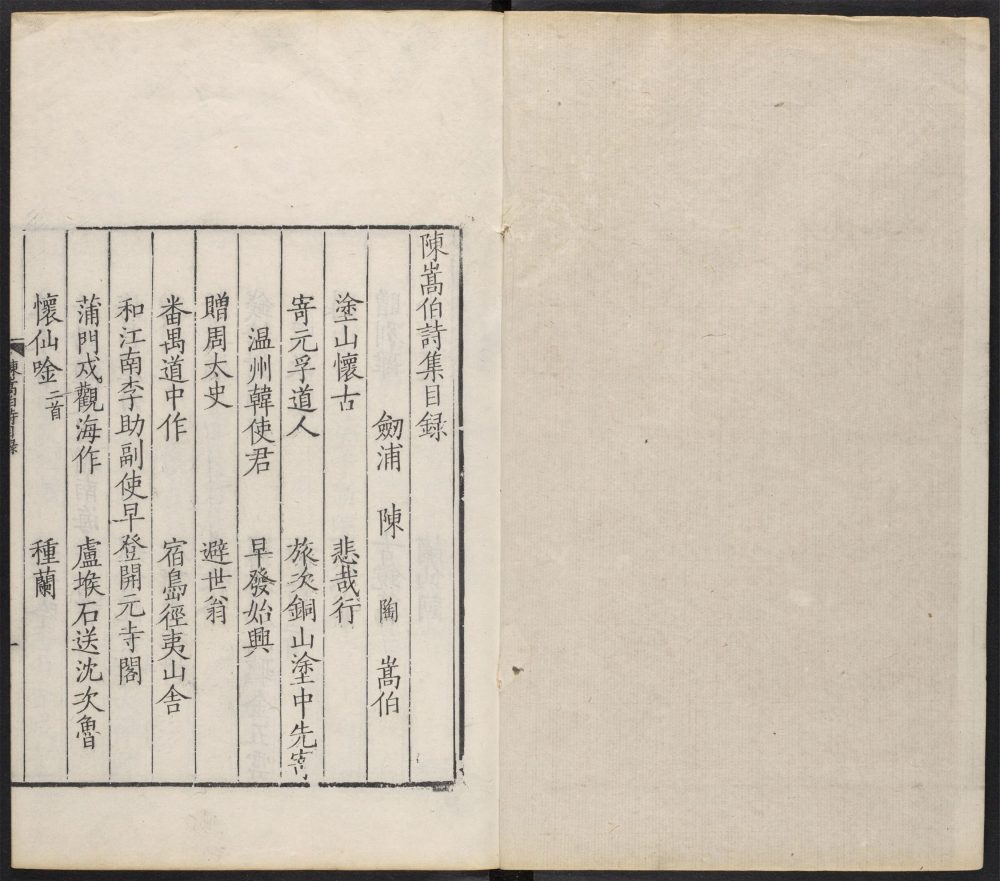 陳嵩伯詩集目録
劒浦 陳 陶 嵩伯
塗山懷古 悲哉行
寄元孚道人 旅次銅山塗中先寄
温州韓使君 早發始興
贈周太史 避世翁
番禺道中作 宿島徑夷山舎
和江南李助副使早登開元寺閣
蒲門戍觀海作 盧堠石送沈次魯
懷仙唫二首 種蘭
陳嵩伯詩目録
一